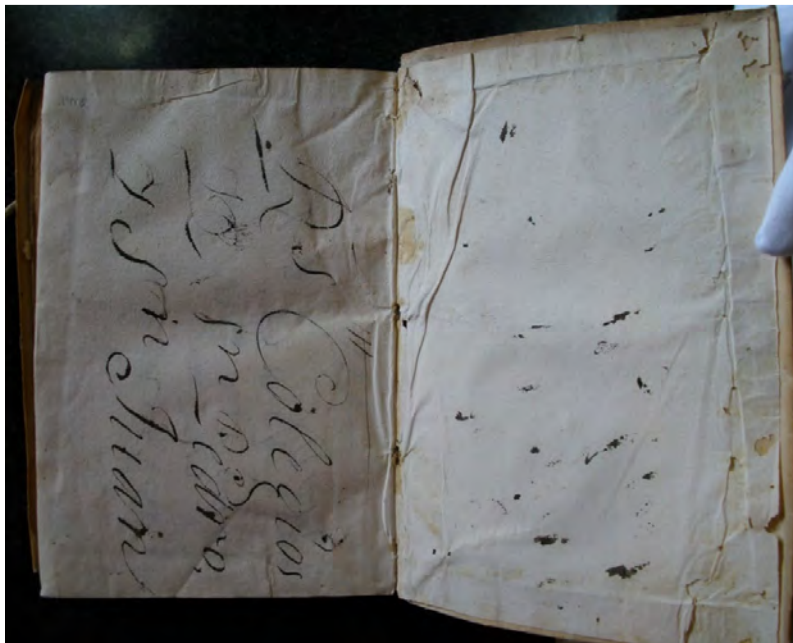 Rs Colegios
de Sn Pedro,
y Sn Juan